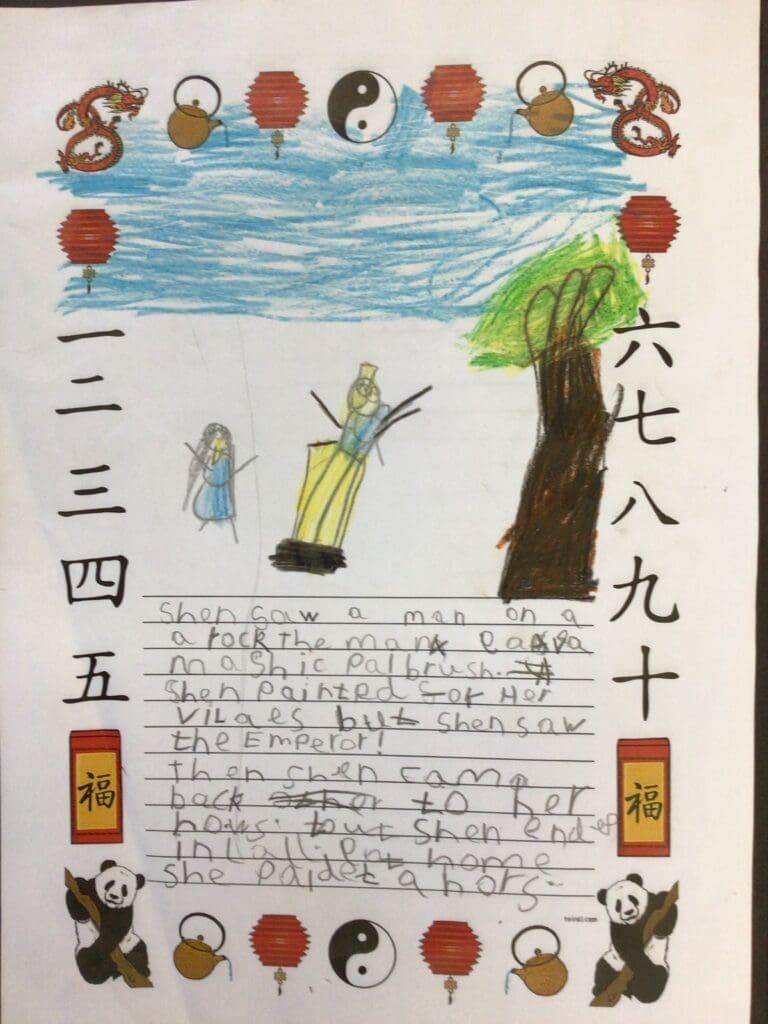 一
二
三
四
五
福
六
七
八
九
十
福
Shen saw a man on a
a rock the man
mashic palbrush.
Shen painted for Her
vilaes but shen saw
the Emperor!
then shen cam
back to her
hows. but shen ended
in home
she paidet a hors
twinkl.com